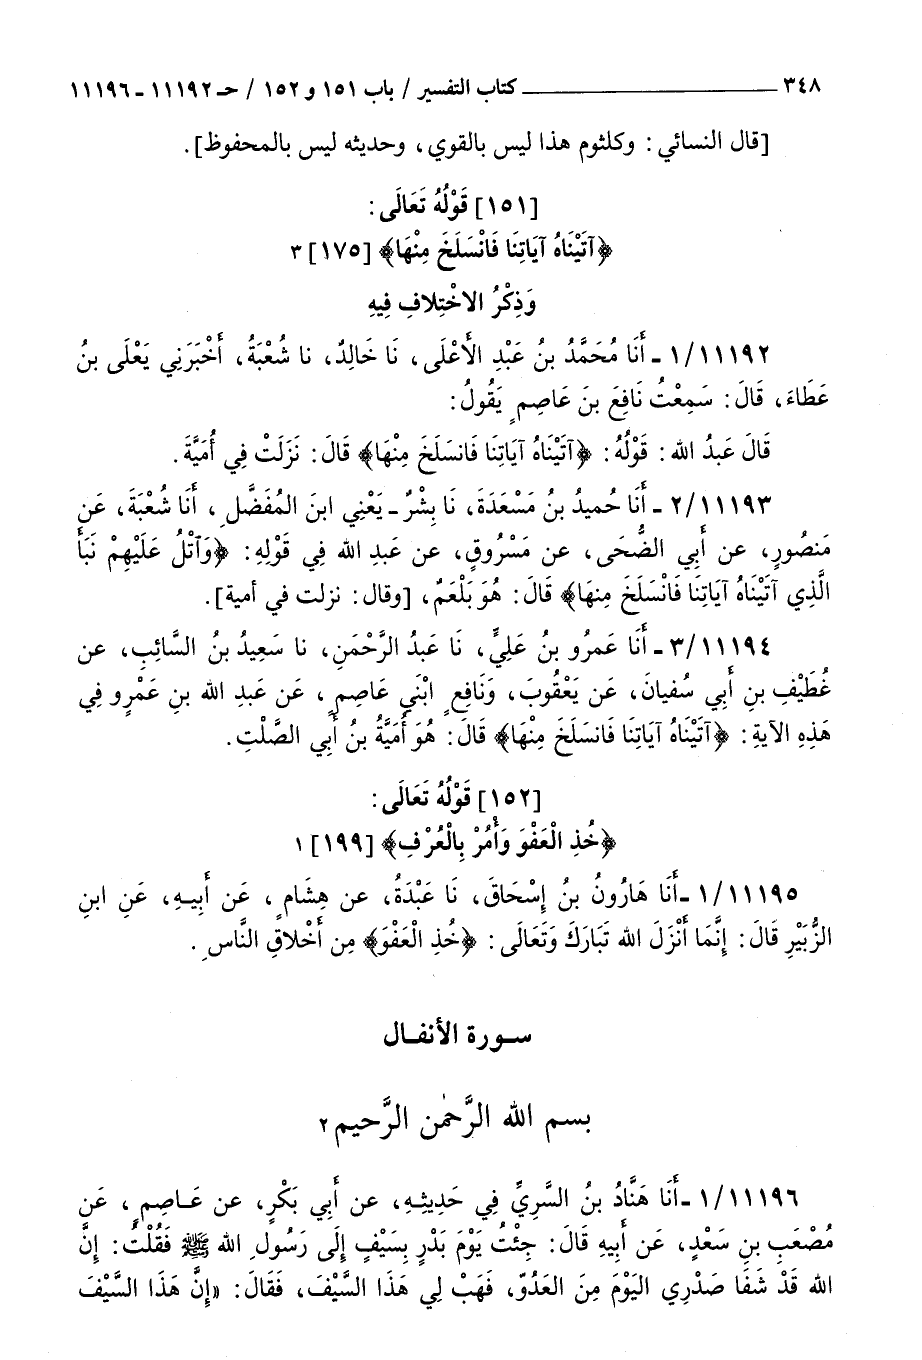 ٣٤٨ ــــــــــــــــــ كتاب التفسير / باب ١٥١ و ١٥٢ / حـ ١١١٩٢ - ١١١٩٦
[قال النسائي: وكلثوم هذا ليس بالقوي، وحديثه ليس بالمحفوظ].
[١٥١] قَوْلُهُ تَعَالَى:
﴿آتَيْنَاهُ آيَاتِنَا فَانْسَلَخَ مِنْهَا﴾ [١٧٥] ٣
وَذِكْرُ الاخْتِلافِ فِيهِ
١/١١١٩٢ - أَنَا مُحَمَّدُ بنُ عَبْدِ الأَعْلَى، نَا خَالِدٌ، نا شُعْبَةُ، أَخْبَرَنِي يَعْلَى بنُ
عَطَاءَ، قَالَ: سَمِعْتُ نَافِعَ بنَ عَاصِمٍ يَقُولُ:
قَالَ عَبدُ الله: قَوْلُهُ: ﴿آتَيْنَاهُ آيَاتِنَا فَانسَلَخَ مِنْهَا﴾ قَالَ: نَزَلَتْ فِي أُمَيَّةَ.
٢/١١١٩٣ - أَنَا حُميدُ بنُ مَسْعَدَةَ، نَا بِشْرٌ - يَعْنِي ابنَ المُفَضَّلِ، أَنَا شُعْبَةَ، عَن
مَنصُورٍ، عن أَبِي الضُّحَى، عن مَسْرُوقٍ، عن عَبدِ الله فِي قَوْلِهِ: ﴿وَآتْلُ عَلَيْهِمْ نَبَأَ
الَّذِي آتَيْنَاهُ آيَاتِنَا فَانْسَلَخَ مِنهَا﴾ قَالَ: هُوَ بَلْعَمُ، [وقال: نزلت في أمية].
٣/١١١٩٤ - أَنَا عَمرُو بنُ عَلِيٍّ، نَا عَبدُ الرَّحْمَنِ، نا سَعِيدُ بنُ السَّائِبِ، عن
غُطَيْفِ بنِ أَبِي سُفيانَ، عَن يَعْقُوبَ، وَنَافِعٍ ابْنَي عَاصِمٍ، عَن عَبدِ الله بنِ عَمْرٍو فِي
هَذِهِ الآيَةِ: ﴿آتَيْنَاهُ آيَاتِنَا فَانسَلَخَ مِنْهَا﴾ قَالَ: هُوَ أُمَيَّةُ بنُ أَبِي الصَّلْتِ.
[١٥٢] قَوْلُهُ تَعَالَى:
﴿خُذِ الْعَفْوَ وَأْمُرْ بِالْعُرْفِ﴾ [١٩٩] ١
١/١١١٩٥ - أَنَا هَارُونُ بنُ إِسْحَاقَ، نَا عَبْدَةُ، عن هِشَامٍ، عَن أَبِيهِ، عَنِ ابنِ
الزُّبَيْرِ قَالَ: إِنَّمَا أَنْزَلَ الله تَبَارَكَ وَتَعَالَى: ﴿خُذِ الْعَفْوَ﴾ مِن أَخْلاقِ النَّاسِ.
سورة الأنفال
بسم الله الرَّحْمٰن الرَّحيم ٢
١/١١١٩٦ - أَنَا هَنَّادُ بنُ السَّرِيِّ فِي حَدِيثِهِ، عن أَبِي بَكْرٍ، عن عَاصِمٍ، عَن
مُصْعَبِ بنِ سَعْدٍ، عَن أَبِيهِ قَالَ: جِئْتُ يَوْمَ بَدْرٍ بِسَيْفٍ إِلَى رَسُولِ الله ﷺ فَقُلْتُ: إِنَّ
الله قَدْ شَفَا صَدْرِي اليَوْمَ مِنَ العَدُوِّ، فَهَبْ لِي هَذَا السَّيْفَ، فَقَالَ: «إِنَّ هَذَا السَّيْفَ